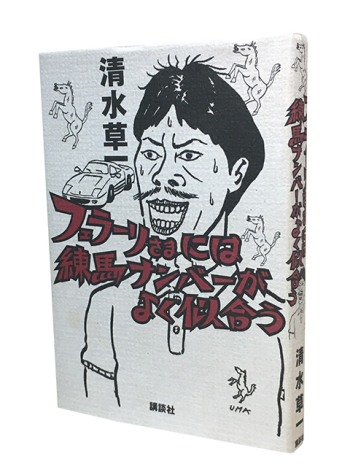 清水草一
フェラーリさまには
練馬ナンバーが、
よく似合う
UMA
講談社
フェラーリさまには
練馬ナンバーが、よく似合う
清水草一
講談社